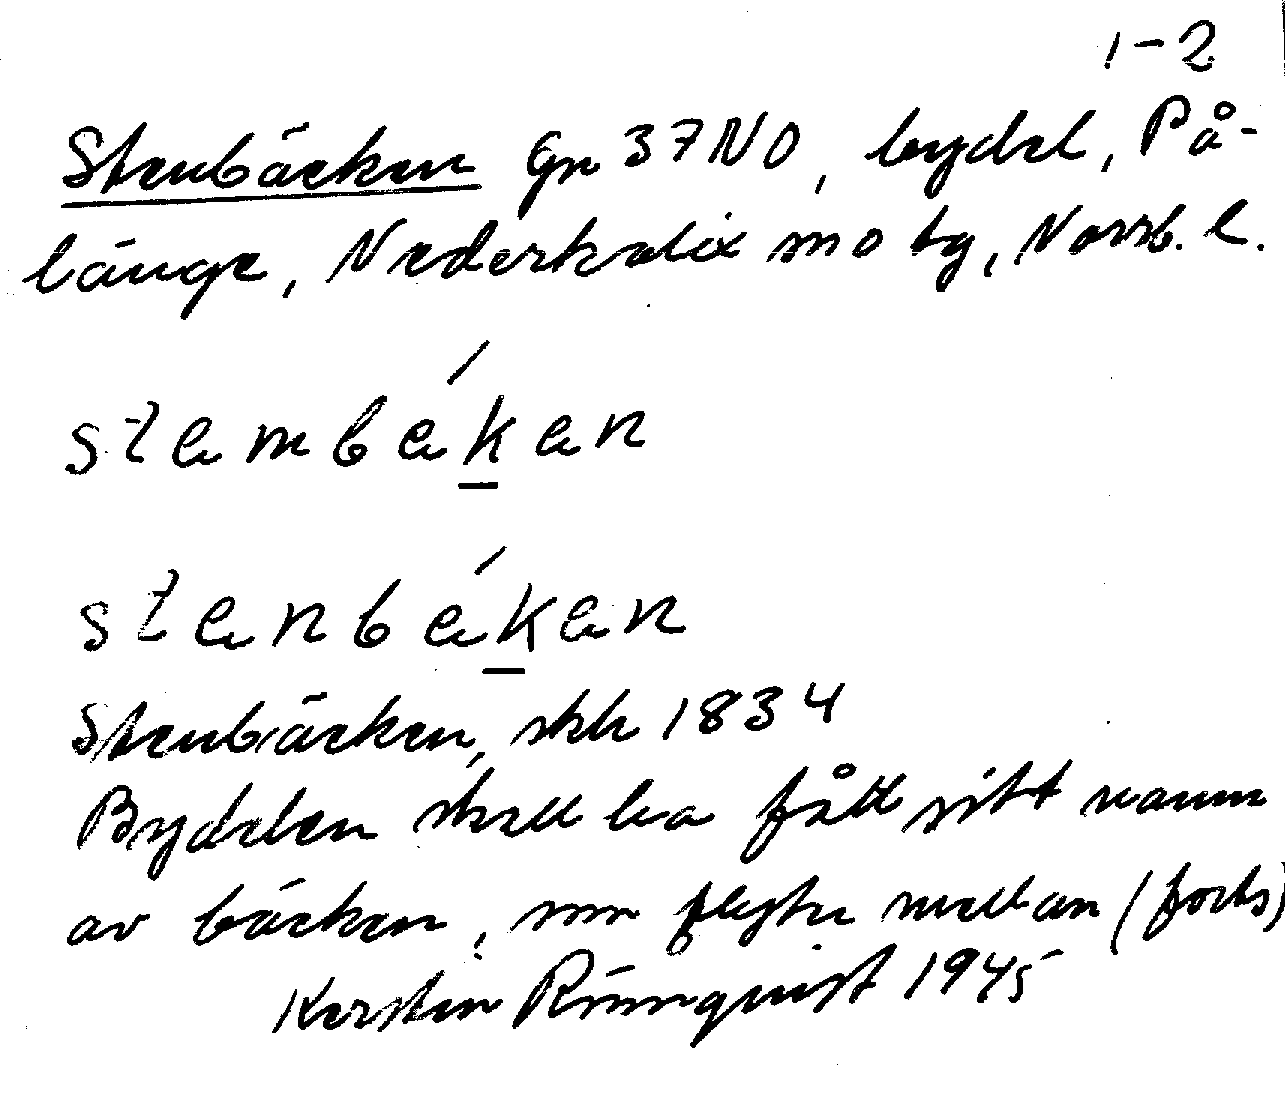 1-2
Stenbäcken Gn 37 NO, bydel, På-
länge, Nederkalix sn o tg, Norrb. l.
stembékan
stenbékan
Stenbäcken, skk 1834
Bydelen skall ha fått sitt namn
av bäcken, som flyter mellan (forts)
Kerstin Rönnquist 1945